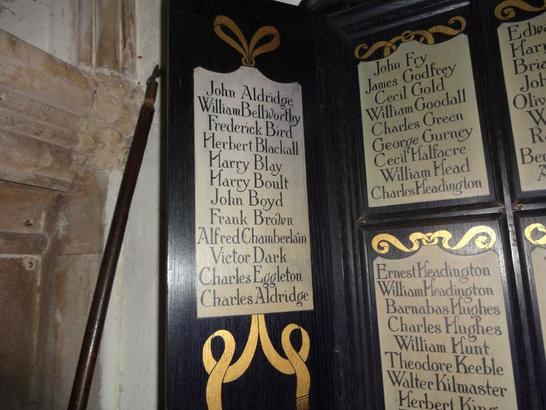 John Aldridge
William Bellworthy
Frederick Bird
Herbert Blackall
Harry Blay
Harry Boult
John Boyd
Frank Brown
Alfred Chamberlain
Victor Dark
Charles Eggleton
Charles Aldridge
John Fry
James Godfrey
Cecil Gold
William Goodall
Charles Green
George Gurney
Cecil Halfacre
William Head
Charles Headington
Ernest Headington
William Headington
Barnabas Hughes
Charles Hughes
William Hunt
Theodore Keeble
Walter Kilmaster
Herbert King